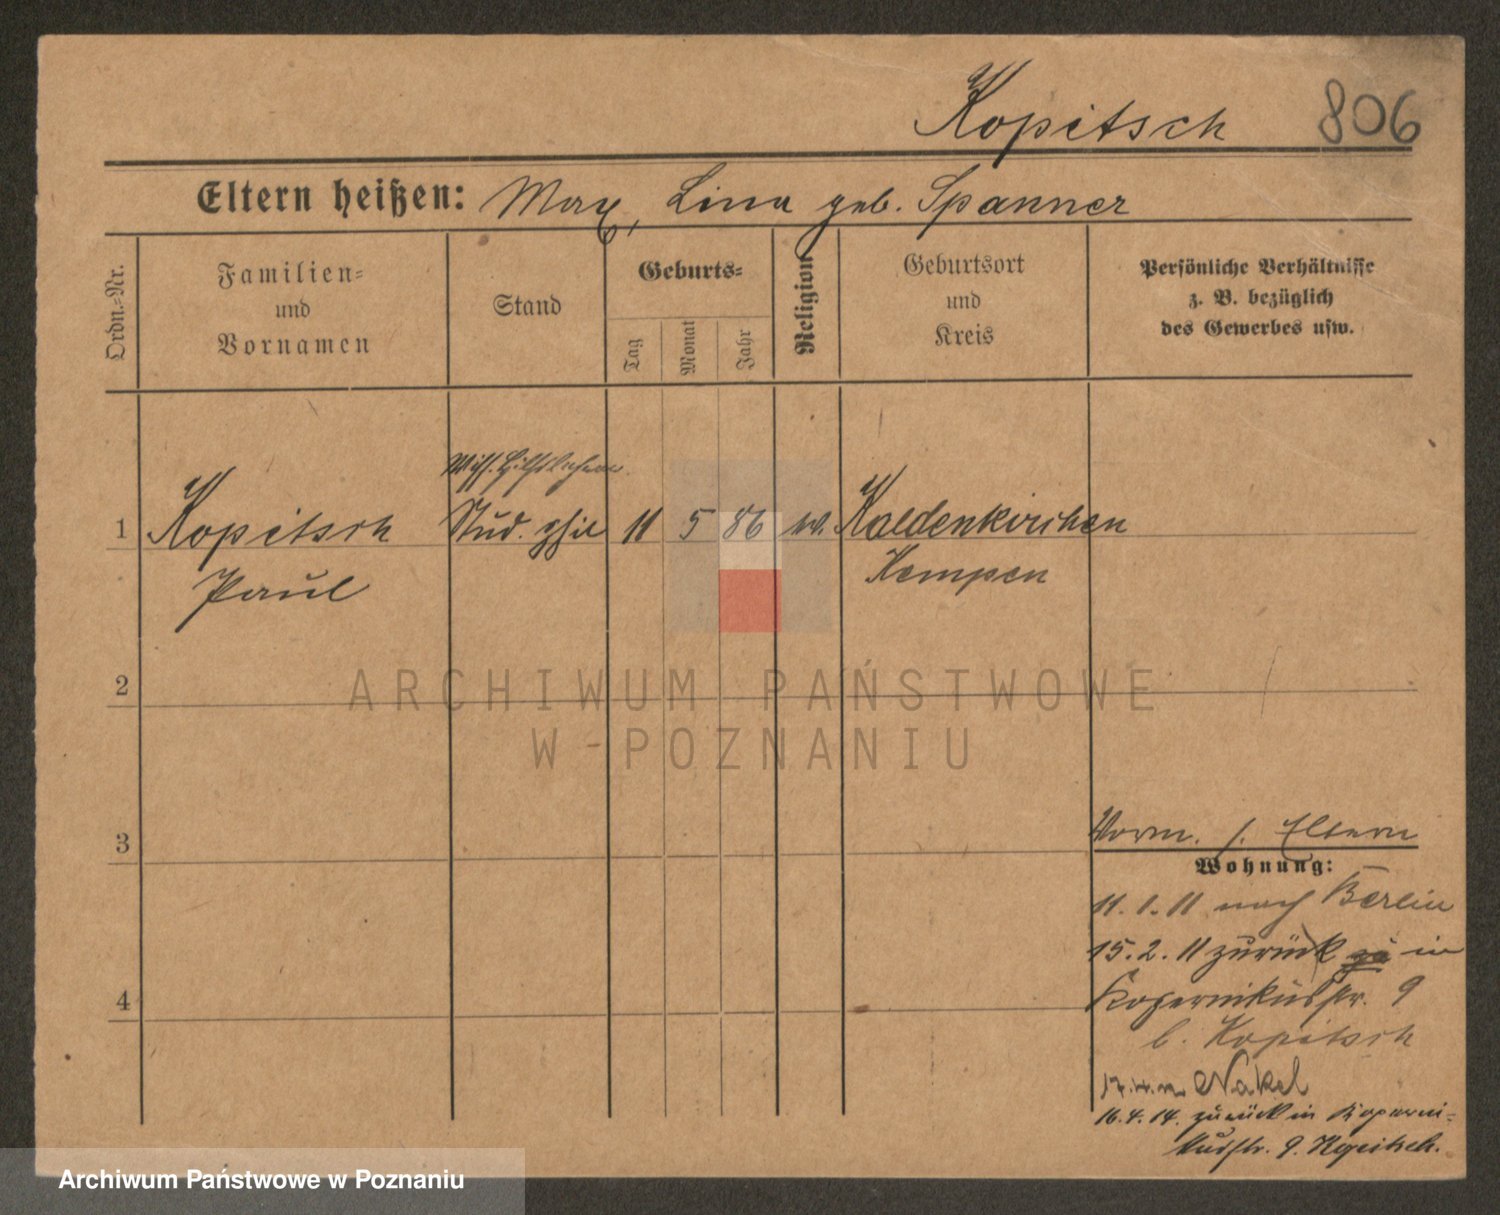 Kopitsch 806
Eltern heißen: Max, Lina geb. Spanner
Ordn.=Nr.
Familien=
und
Vornamen
Stand
Geburts=
Tag
Monat
Jahr
Religion
Geburtsort
und
Kreis
Persönliche Verhältnisse
z. B. bezüglich
des Gewerbes usw.
Wiss. Hilfslehrer
1 Kopitsch Stud. phil 11 5 86 Kaldenkirchen
Paul Kempen
2
ARCHIWUM PAŃSTWOWE
W POZNANIU
3
Vorm. s. Eltern
Wohnung:
11.1.11 nach Berlin
15.2.11 zurück in
4
Kopernikusstr. 9
b. Kopitsch
Nakel
16.4.14. zurück in Koperni=
kusstr. 9. Kopitsch.
Archiwum Państwowe w Poznaniu